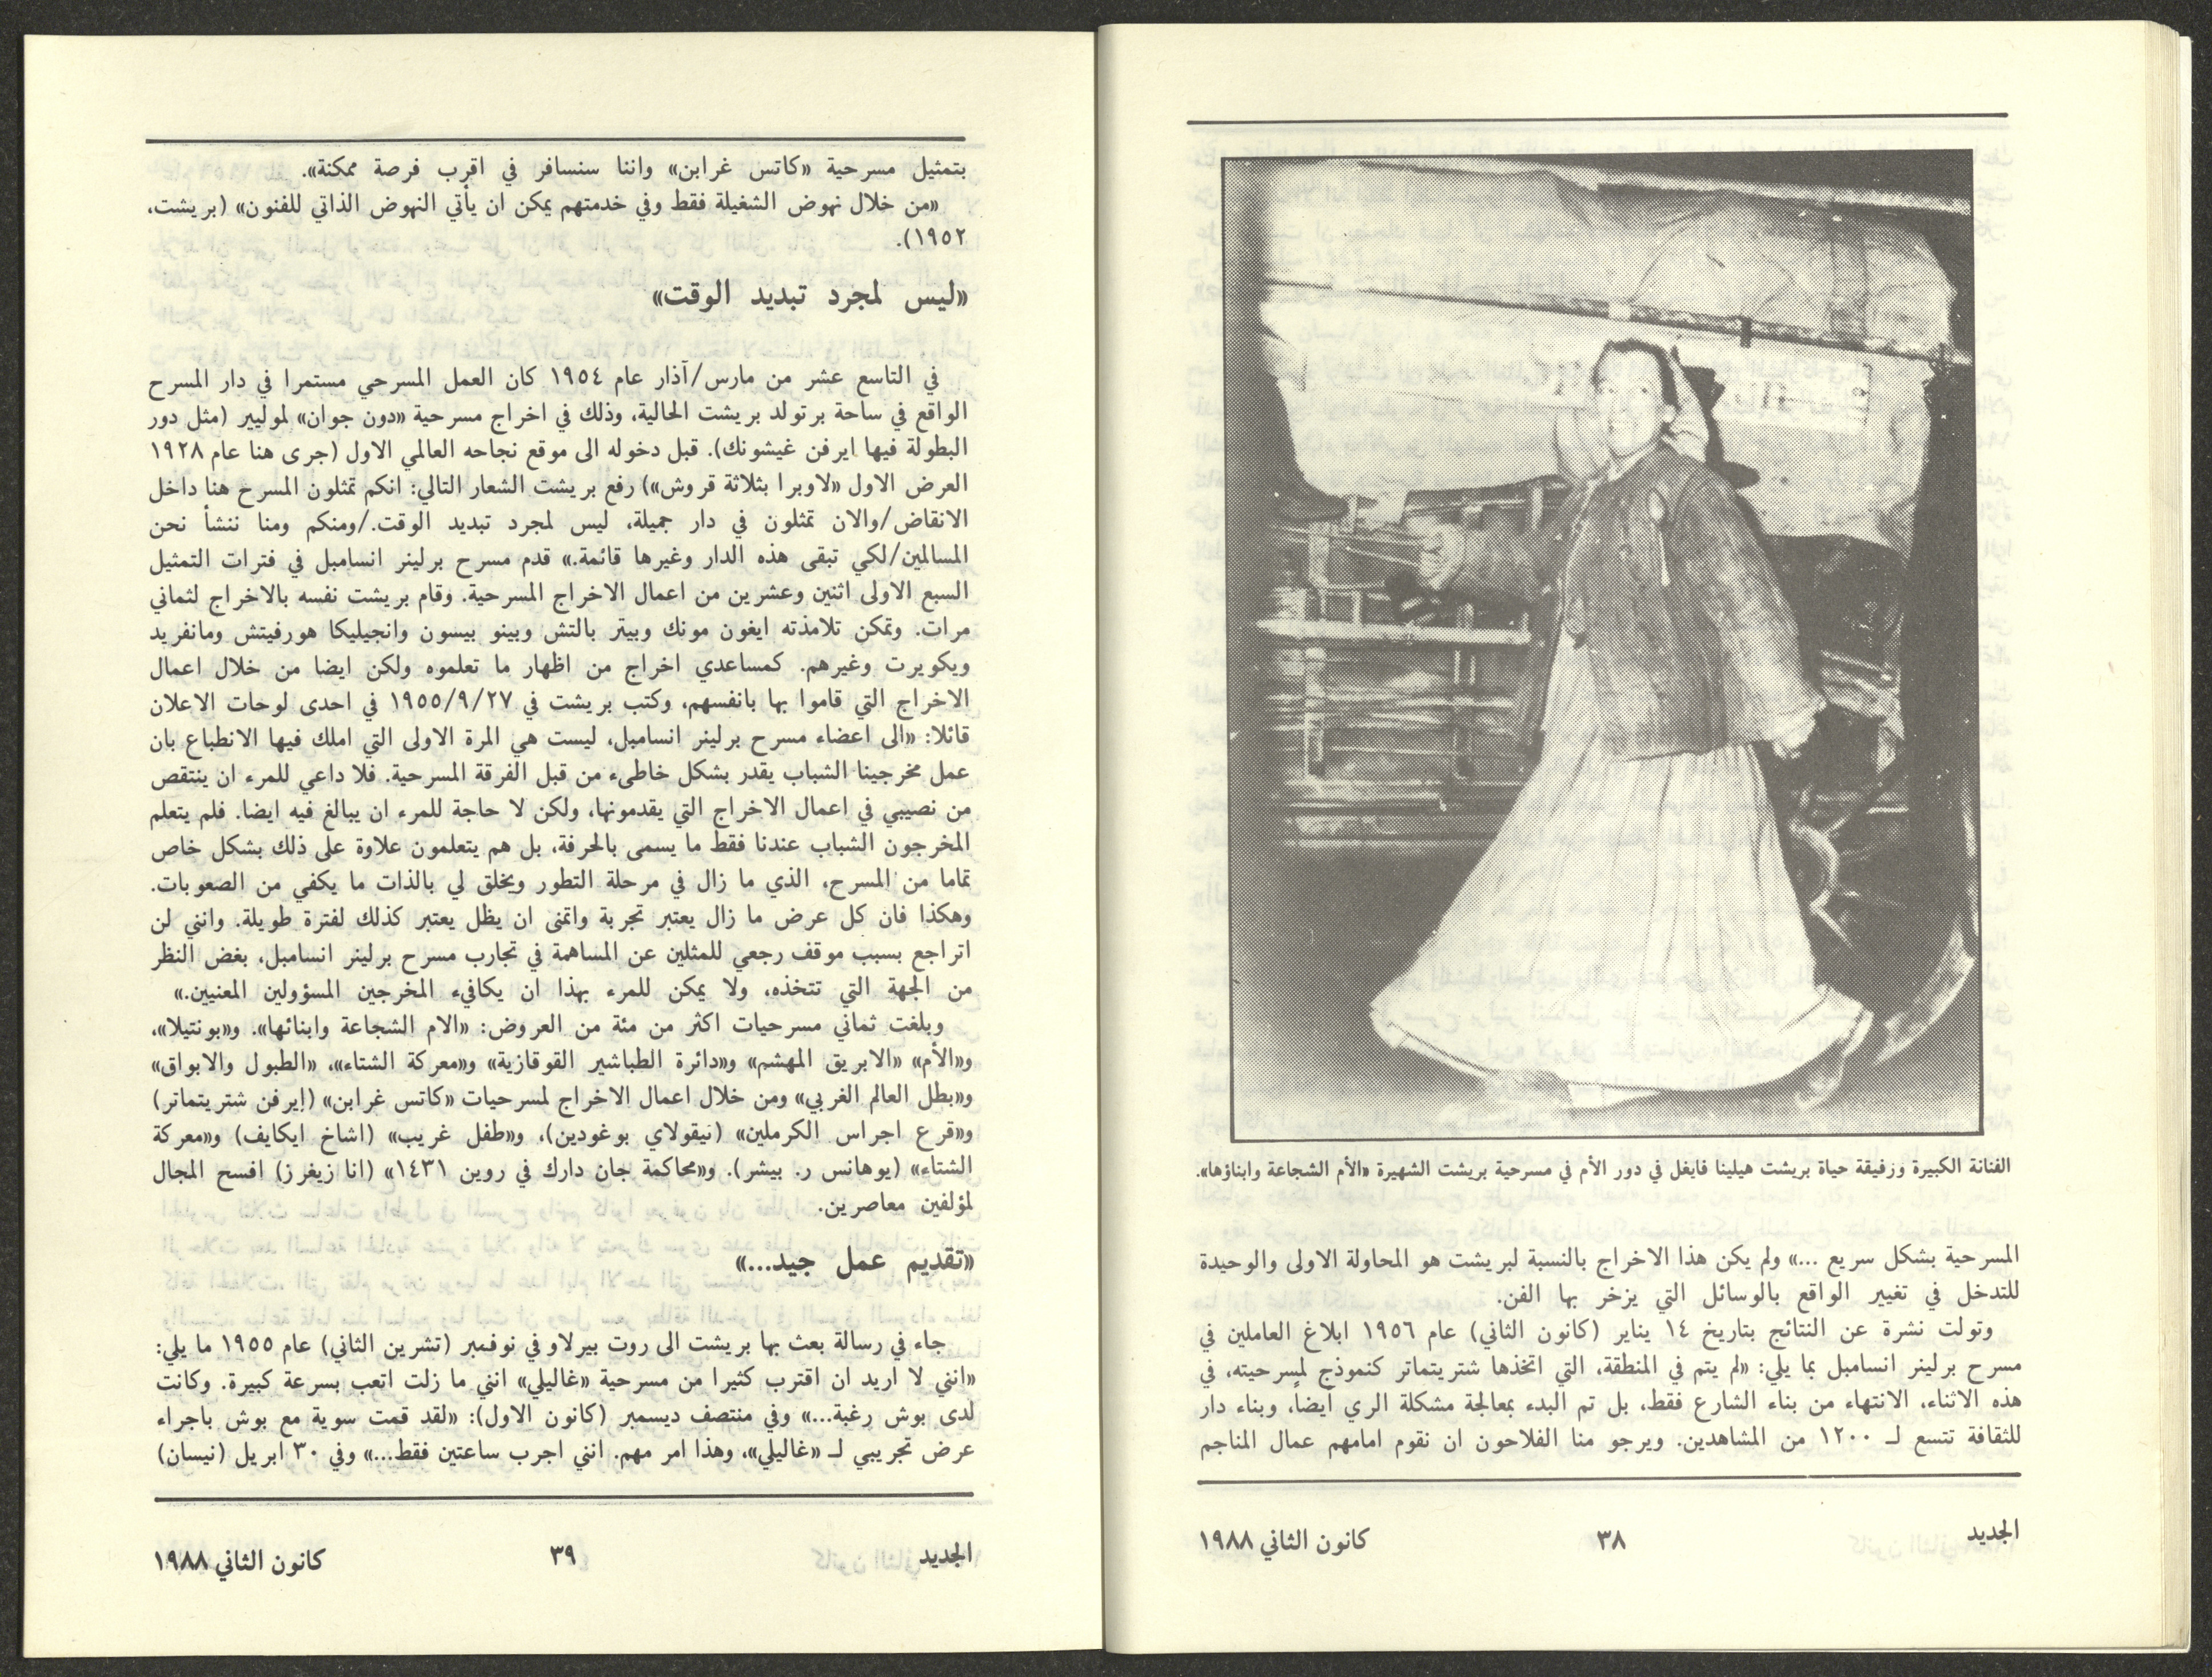 الفنانة الكبيرة ورفيقة حياة بريشت هيلينا فايغل في دور الأم في مسرحية بريشت الشهيرة «الأم الشجاعة وابناؤها».
المسرحية بشكل سريع ...» ولم يكن هذا الاخراج بالنسبة لبريشت هو المحاولة الاولى والوحيدة
للتدخل في تغيير الواقع بالوسائل التي يزخر بها الفن.
وتولت نشرة عن النتائج بتاريخ ١٤ يناير (كانون الثاني) عام ١٩٥٦ ابلاغ العاملين في
مسرح برلينر انسامبل بما يلي: «لم يتم في المنطقة، التي اتخذها شتريتماتر كنموذج لمسرحيته، في
هذه الاثناء، الانتهاء من بناء الشارع فقط، بل تم البدء بمعالجة مشكلة الري أيضاً، وبناء دار
للثقافة تتسع لـ ١٢٠٠ من المشاهدين. ويرجو منا الفلاحون ان نقوم امامهم عمال المناجم
الجديد
٣٨
كانون الثاني ١٩٨٨
بتمثيل مسرحية «كاتس غرابن» واننا سنسافر في اقرب فرصة ممكنة».
«من خلال نهوض الشغيلة فقط وفي خدمتهم يمكن ان يأتي النهوض الذاتي للفنون» (بريشت،
١٩٥٢).
«ليس لمجرد تبديد الوقت»
في التاسع عشر من مارس/آذار عام ١٩٥٤ كان العمل المسرحي مستمرا في دار المسرح
الواقع في ساحة برتولد بريشت الحالية، وذلك في اخراج مسرحية «دون جوان» لموليير (مثل دور
البطولة فيها ايرفن غيشونك). قبل دخوله الى موقع نجاحه العالمي الاول (جرى هنا عام ١٩٢٨
العرض الاول «لاوبرا بثلاثة قروش») رفع بريشت الشعار التالي: انكم تمثلون المسرح هنا داخل
الانقاض/والان تمثلون في دار جميلة، ليس لمجرد تبديد الوقت./ومنكم ومنا ننشأ نحن
المسالمين/لكي تبقى هذه الدار وغيرها قائمة.» قدم مسرح برلينر انسامبل في فترات التمثيل
السبع الاولى اثنين وعشرين من اعمال الاخراج المسرحية. وقام بريشت نفسه بالاخراج لثماني
مرات. وتمكن تلامذته ايغون مونك وبيتر بالتش وبينو بيسون وانجيليكا هورفيتش ومانفريد
ويكويرت وغيرهم. كمساعدي اخراج من اظهار ما تعلموه ولكن ايضا من خلال اعمال
الاخراج التي قاموا بها بانفسهم، وكتب بريشت في ١٩٥٥/٩/٢٧ في احدى لوحات الاعلان
قائلا: «الى اعضاء مسرح برلينر انسامبل، ليست هي المرة الاولى التي املك فيها الانطباع بان
عمل مخرجينا الشباب يقدر بشكل خاطىء من قبل الفرقة المسرحية. فلا داعي للمرء ان ينتقص
من نصيبي في اعمال الاخراج التي يقدمونها، ولكن لا حاجة للمرء ان يبالغ فيه ايضا. فلم يتعلم
المخرجون الشباب عندنا فقط ما يسمى بالحرفة، بل هم يتعلمون علاوة على ذلك بشكل خاص
تماما من المسرح، الذي ما زال في مرحلة التطور ويخلق لي بالذات ما يكفي من الصعوبات.
وهكذا فان كل عرض ما زال يعتبر تجربة واتمنى ان يظل يعتبر كذلك لفترة طويلة. وانني لن
اتراجع بسبب موقف رجعي للمثلين عن المساهمة في تجارب مسرح برلينر انسامبل، بغض النظر
من الجهة التي تتخذه، ولا يمكن للمرء بهذا ان يكافيء المخرجين المسؤولين المعنيين.»
وبلغت ثماني مسرحيات اكثر من مئة من العروض: «الام الشجاعة وابنائها». و«بونتيلا»،
و«الأم» «الابريق المهشم» و«دائرة الطباشير القوقازية» و«معركة الشتاء»، «الطبول والابواق»
و«بطل العالم الغربي» ومن خلال اعمال الاخراج لمسرحيات «كاتس غرابن» (إيرفن شتريتماتر)
و«قرع اجراس الكرملين» (نيقولاي بوغودين)، و«طفل غريب» (اشاخ ايكايف) و«معركة
الشتاء» (يوهانس ر. بيشر). و«محاكمة جان دارك في روين ١٤٣١» (انا زيغرز) افسح المجال
لمؤلفين معاصرين.
«تقديم عمل جيد...»
جاء في رسالة بعث بها بريشت الى روت بيرلاو في نوفمبر (تشرين الثاني) عام ١٩٥٥ ما يلي:
«انني لا اريد ان اقترب كثيرا من مسرحية «غاليلي» انني ما زلت اتعب بسرعة كبيرة. وكانت
لدى بوش رغبة...» وفي منتصف ديسمبر (كانون الاول): «لقد قمت سوية مع بوش باجراء
عرض تجريبي لـ «غاليلي»، وهذا امر مهم. انني اجرب ساعتين فقط...» وفي ٣٠ ابريل (نيسان)
الجديد
٣٩
كانون الثاني ١٩٨٨